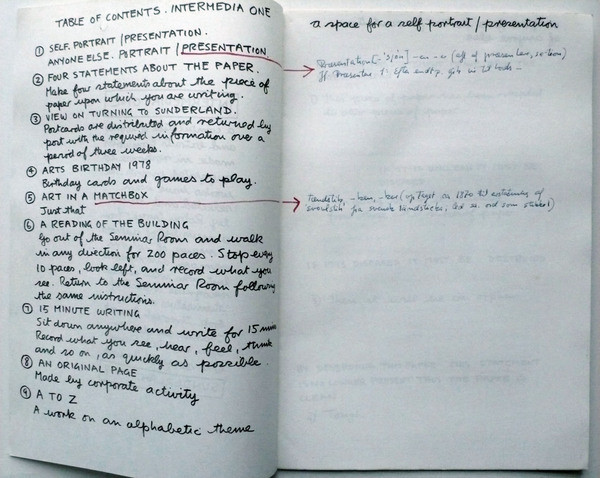 TABLE OF CONTENTS. INTERMEDIA ONE
① SELF. PORTRAIT / PRESENTATION.
ANYONE ELSE. PORTRAIT / PRESENTATION
② FOUR STATEMENTS ABOUT THE PAPER.
Make four statements about the piece of
paper upon which you are writing.
③ VIEW ON TURNING TO SUNDERLAND.
Postcards are distributed and returned by
post with the required information over a
period of three weeks.
④ ARTS BIRTHDAY 1978
Birthday cards and games to play.
⑤ ART IN A MATCHBOX
Just that
⑥ A READING OF THE BUILDING
Go out of the Seminar Room and walk
in any direction for 200 paces. Stop every
10 paces, look left, and record what you
see. Return to the Seminar Room following
the same instructions.
⑦ 15 MINUTE WRITING
Sit down anywhere and write for 15 mins
Record what you see, hear, feel, think
and so on, as quickly as possible.
⑧ AN ORIGINAL PAGE
Made by corporate activity
⑨ A TO Z
A work on an alphabetic theme
a space for a self portrait / presentation